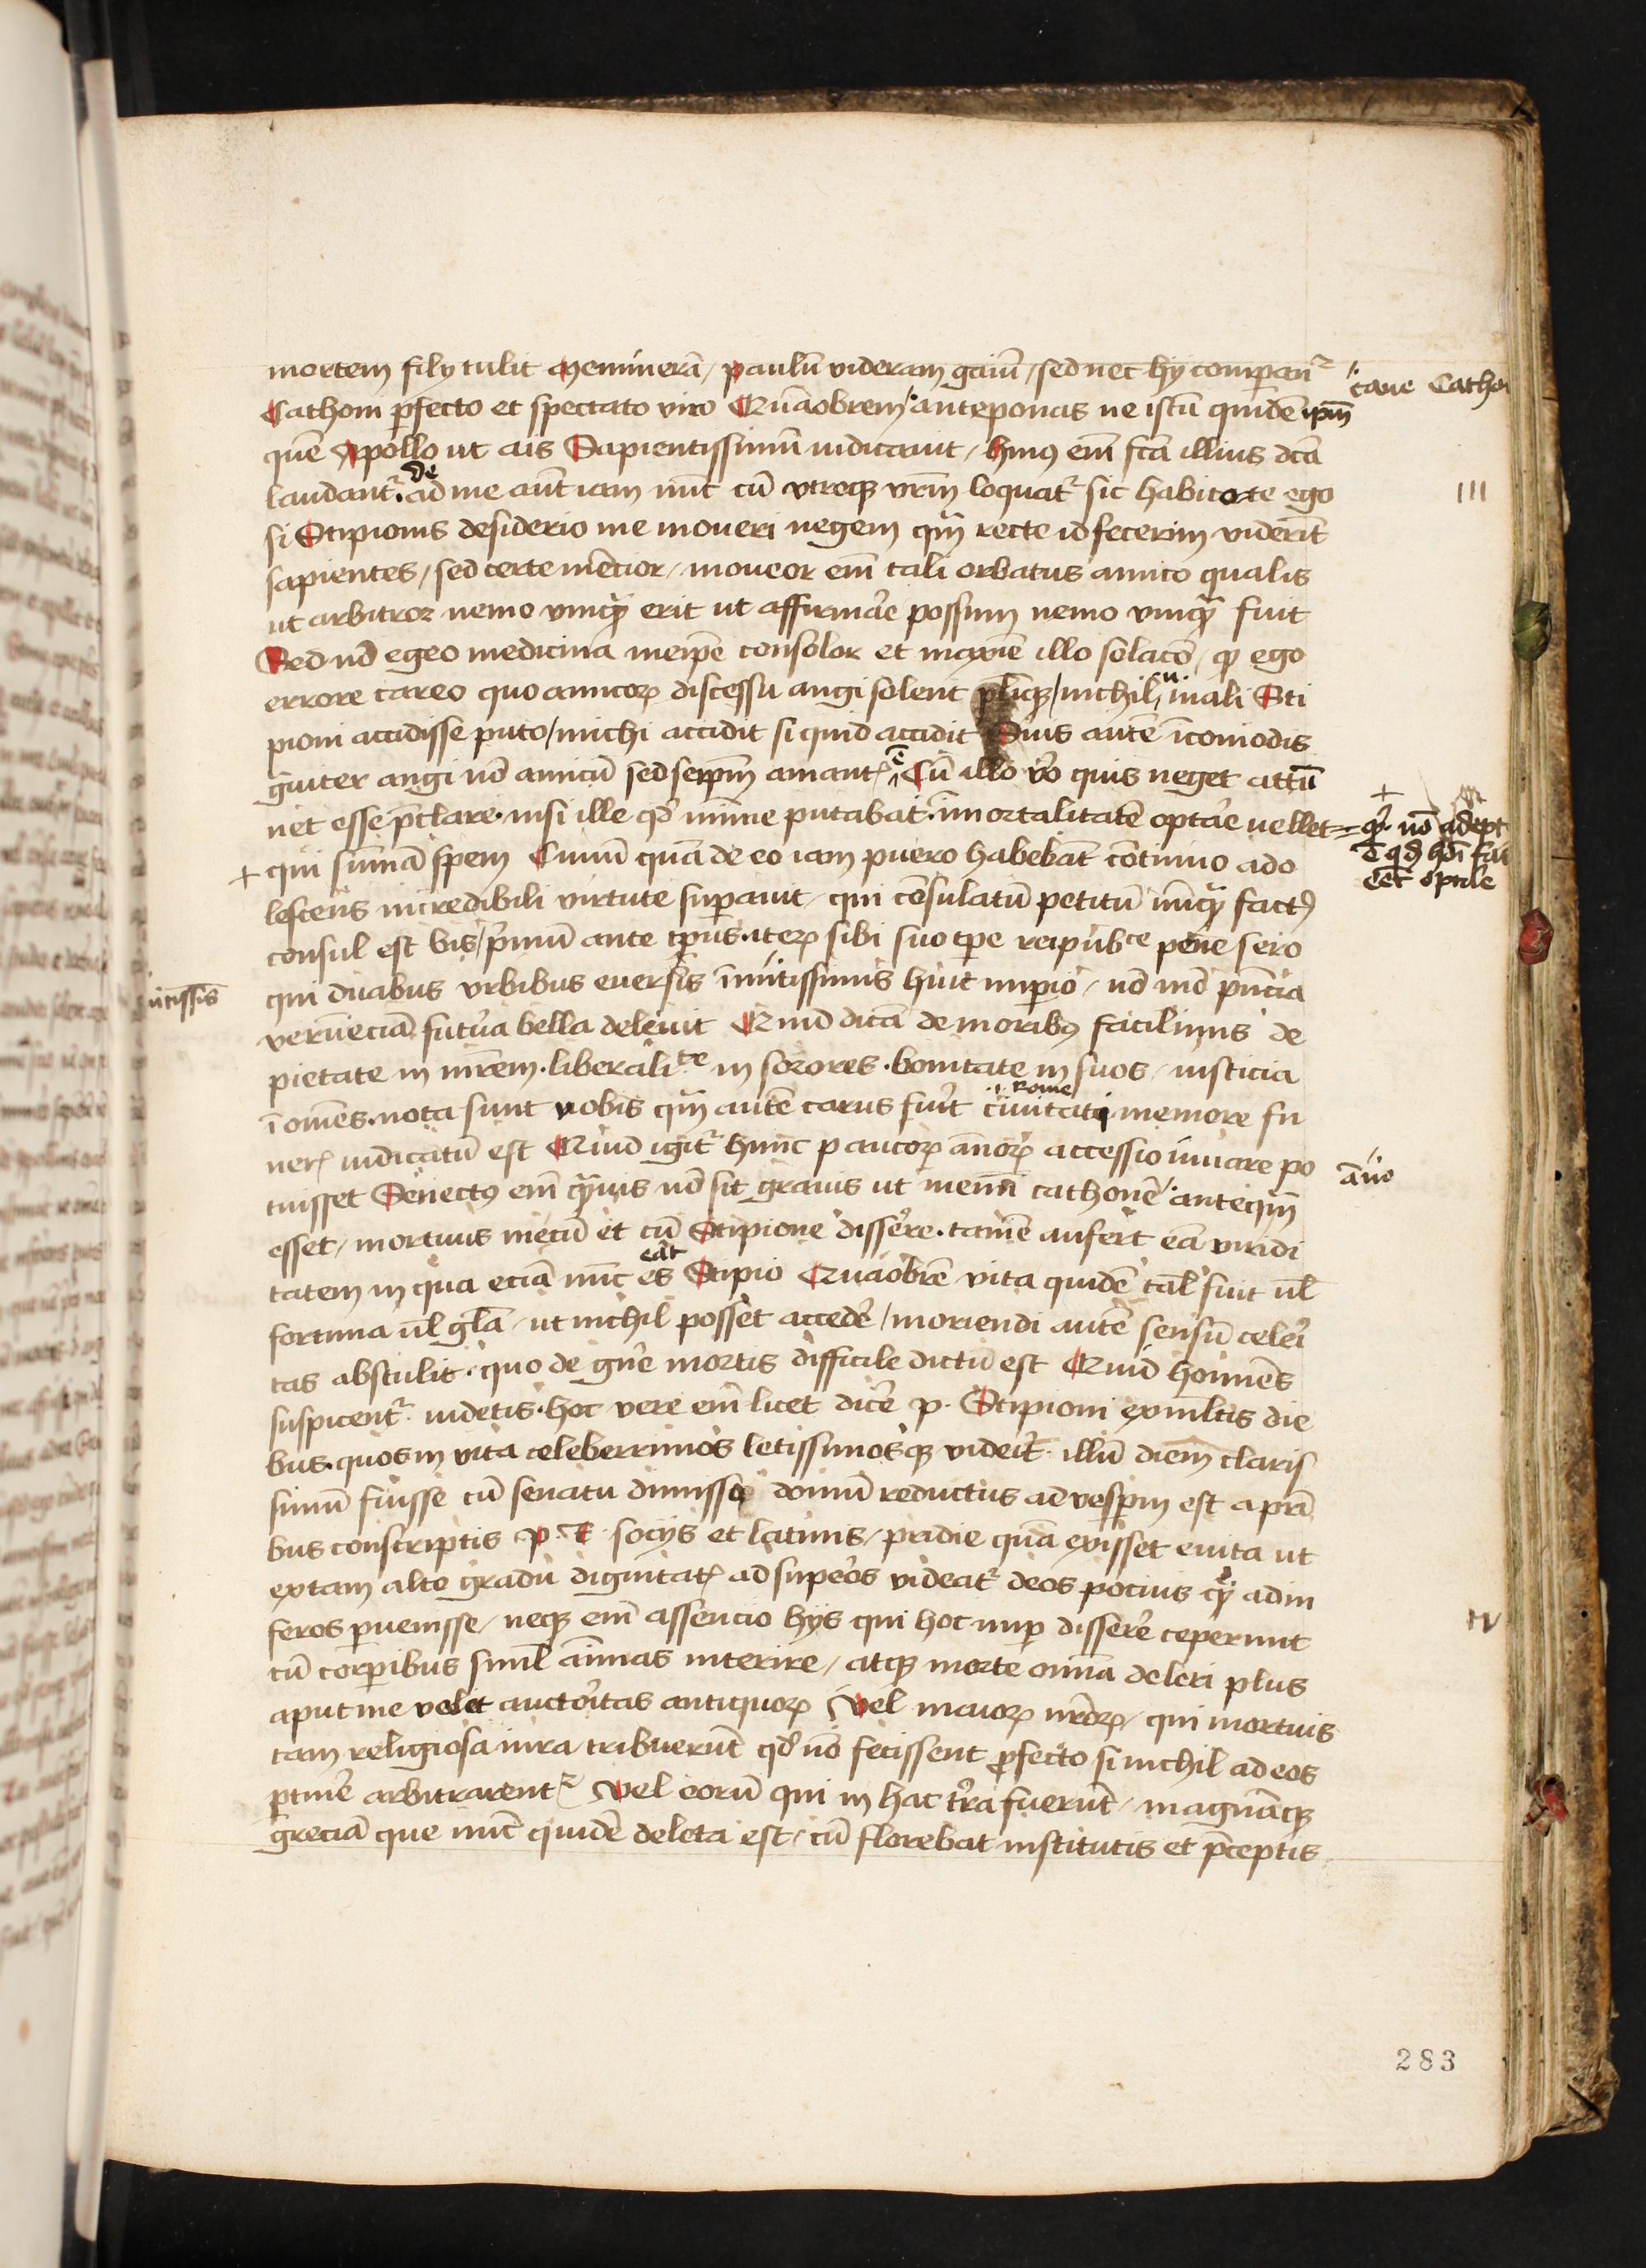 mortem filij tulit Meminerā / paulū videram gaiū / sed nec hij comparant᷑
Cathoni ꝑfecto et spectato viro Quāobrem anteponas ne istū quidē ip̄m
cave Catho
quē Apollo ut ais Sapientissimū iudicavit / huiꝰ em̄ fc̄a illius dc̄a
laudant᷑. de me aūt iam nūc cū vtroqꝫ vr̄m loquat᷑ sic habitote ego
III
si Scipionis desiderio me moveri negem qm̄ recte id fecerim viderīt
sapientes / sed certe mēcior / moveor em̄ tali orbatus amico qualis
ut arbitror nemo vmqꝫ erit ut affirmāe possum nemo vmqꝫ fuit
Sed nō egeo medicina meip̄e consolor et maxie illo solacō / qꝫ ego
errore careo quo amicoꝝ discessu angi solent pliqꝫ / nichil mali Sci
pioni accidisse puto / michi accidit si quid accidit Suis autē īcomodis
gͣviter angi nō amicū sed seip̄m amantꝭ ē Cū illo v̄o quis neget actū
net esse p̄clare. nisi ille qd̄ mīme putabat. īmortalitatē optāe vellet
+ qͦ. nō adept
ē qd̄ hōi fas
eēt optāe
+ qui sūmā spem Civiū quā de eo iam puero habebāt cōtinuo ado
lescens incredibili virtute suꝑavit / qui cōsulatū petitū nūqꝫ factꝰ
consul est bis / p̄mū ante tp̄us. iteꝝ sibi suo tp̄e reipubce pene sero
qui duabus vrbibus eversis īmitissimis huic imꝑio / nō mō pn̄cia
verūeciā futur̄a bella delevit Quid dicā de moribꝰ facilimis de
pietate in mr̄em. liberalite in sorores. bonitate in suos / iusticia
ī om̄es. nota sunt vobis qm̄ autē carus fuīt civitati Rome memore fu
nerꝭ iudicatū est Quid igit᷑ hunc paucoꝝ annoꝝ accessio iuvare po
tuisset Senectꝰ em̄ qͣvis nō sit gravis ut memī cathonē anteqm̄
āno
esset / mortuus mecū et cū Scipione dissere. tamē aufert eā viridi
tatem in qua eciā nūc es eāt Scipio Quāobrē vita quidē tal̄ fuit ul̄
fortuna ul̄ gl̄a / ut nichil posset accedē / moriendi autē sensū celei
tas abstulit. quo de gn̄e mortis difficile dictū est Quid homīes
suspicent᷑. videtis. hoc vere em̄ licet dicē p. Scipioni ex mltis die
bus. quos in vita celeberrimos letissimosqꝫ videit. illū diem claris
simū fuisse cū senatu dimisso domū reductus ad vesꝑm est a pr̄i
bus conscriptis p. r. socijs et latinis / pridie quā exisset e vita ut
ex tam alto gradu dignitatꝭ ad supeos videat᷑ deos pocius qͣ ad in
feros ꝑvenisse / neqꝫ em̄ assencio hijs qui hoc nuꝑ dissere ceperunt
IV
cū corꝑibus siml̄ aīmas interire / atqꝫ morte omīa deleri plus
aput me valet auctoitas antiquoꝝ Vel maioꝝ nr̄oꝝ / qui mortuis
tam religiosa iura tribuerūt qd̄ nō fecissent ꝓfecto si nichil ad eos
ꝑtinē arbitrarent᷑ Vel eorū qui in hac tr̄ra fuerūt / magnāqꝫ
greciā que nūc quidē deleta est / cū florebat institutis et p̄ceptis
283